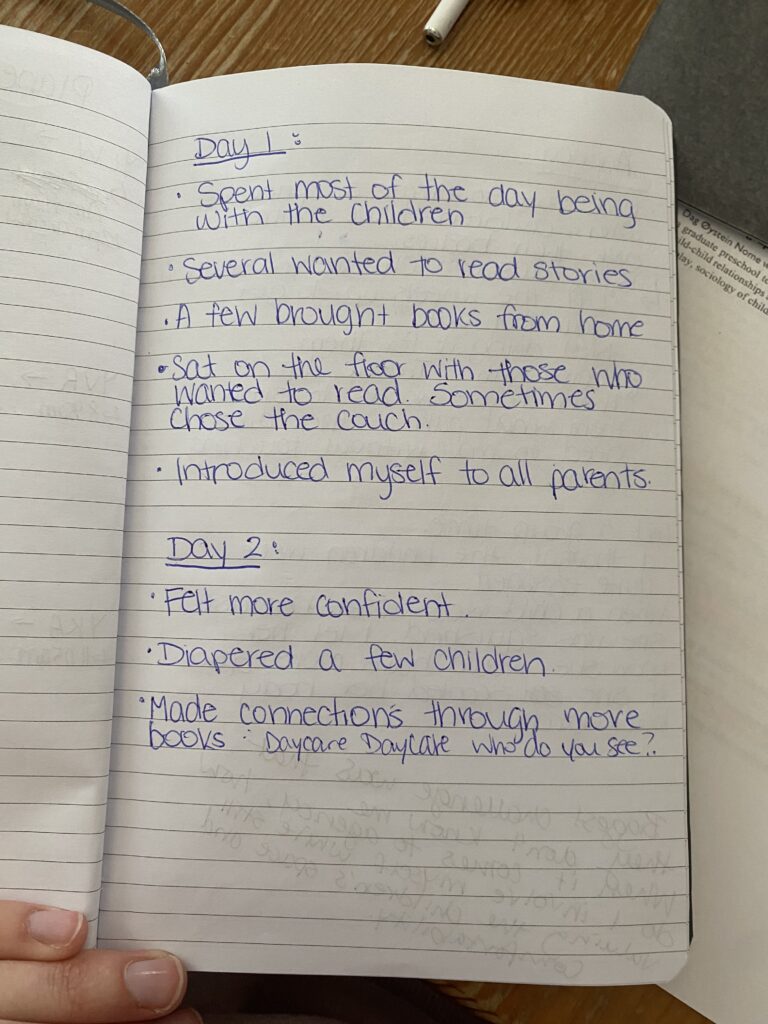 Day 1 :
· Spent most of the day being
with the children
· Several wanted to read stories
· A few brought books from home
· Sat on the floor with those who
wanted to read. Sometimes
chose the couch.
· Introduced myself to all parents.
Day 2 :
· Felt more confident.
· Diapered a few children.
· Made connections through more
books : Daycare Daycare who do you see?
Dag Øystein Nome
graduate preschool
child relationships
sociology of